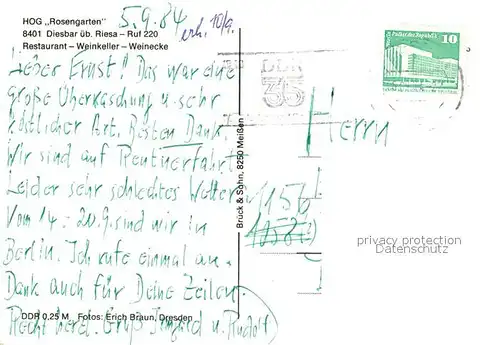 HOG „Rosengarten"
8401 Diesbar üb. Riesa – Ruf 220
Restaurant – Weinkeller – Weinecke
5.9.84
erh. 10/9.
Lieber Ernst! Das war eine
große Überraschung u. sehr
köstlicher Art. Besten Dank.
Wir sind auf Rentnerfahrt
Leider sehr schlechtes Wetter
Vom 14.-20.9. sind wir in
Berlin. Ich rufe einmal an.
Dank auch für Deine Zeilen.
Recht herzl. Gruß Irmgard u. Rudolf
DDR 0,25 M Fotos: Erich Braun, Dresden
Brück & Sohn, 8250 Meißen
DDR
35
Palast der Republik
10
Herrn
1156
privacy protection
Datenschutz